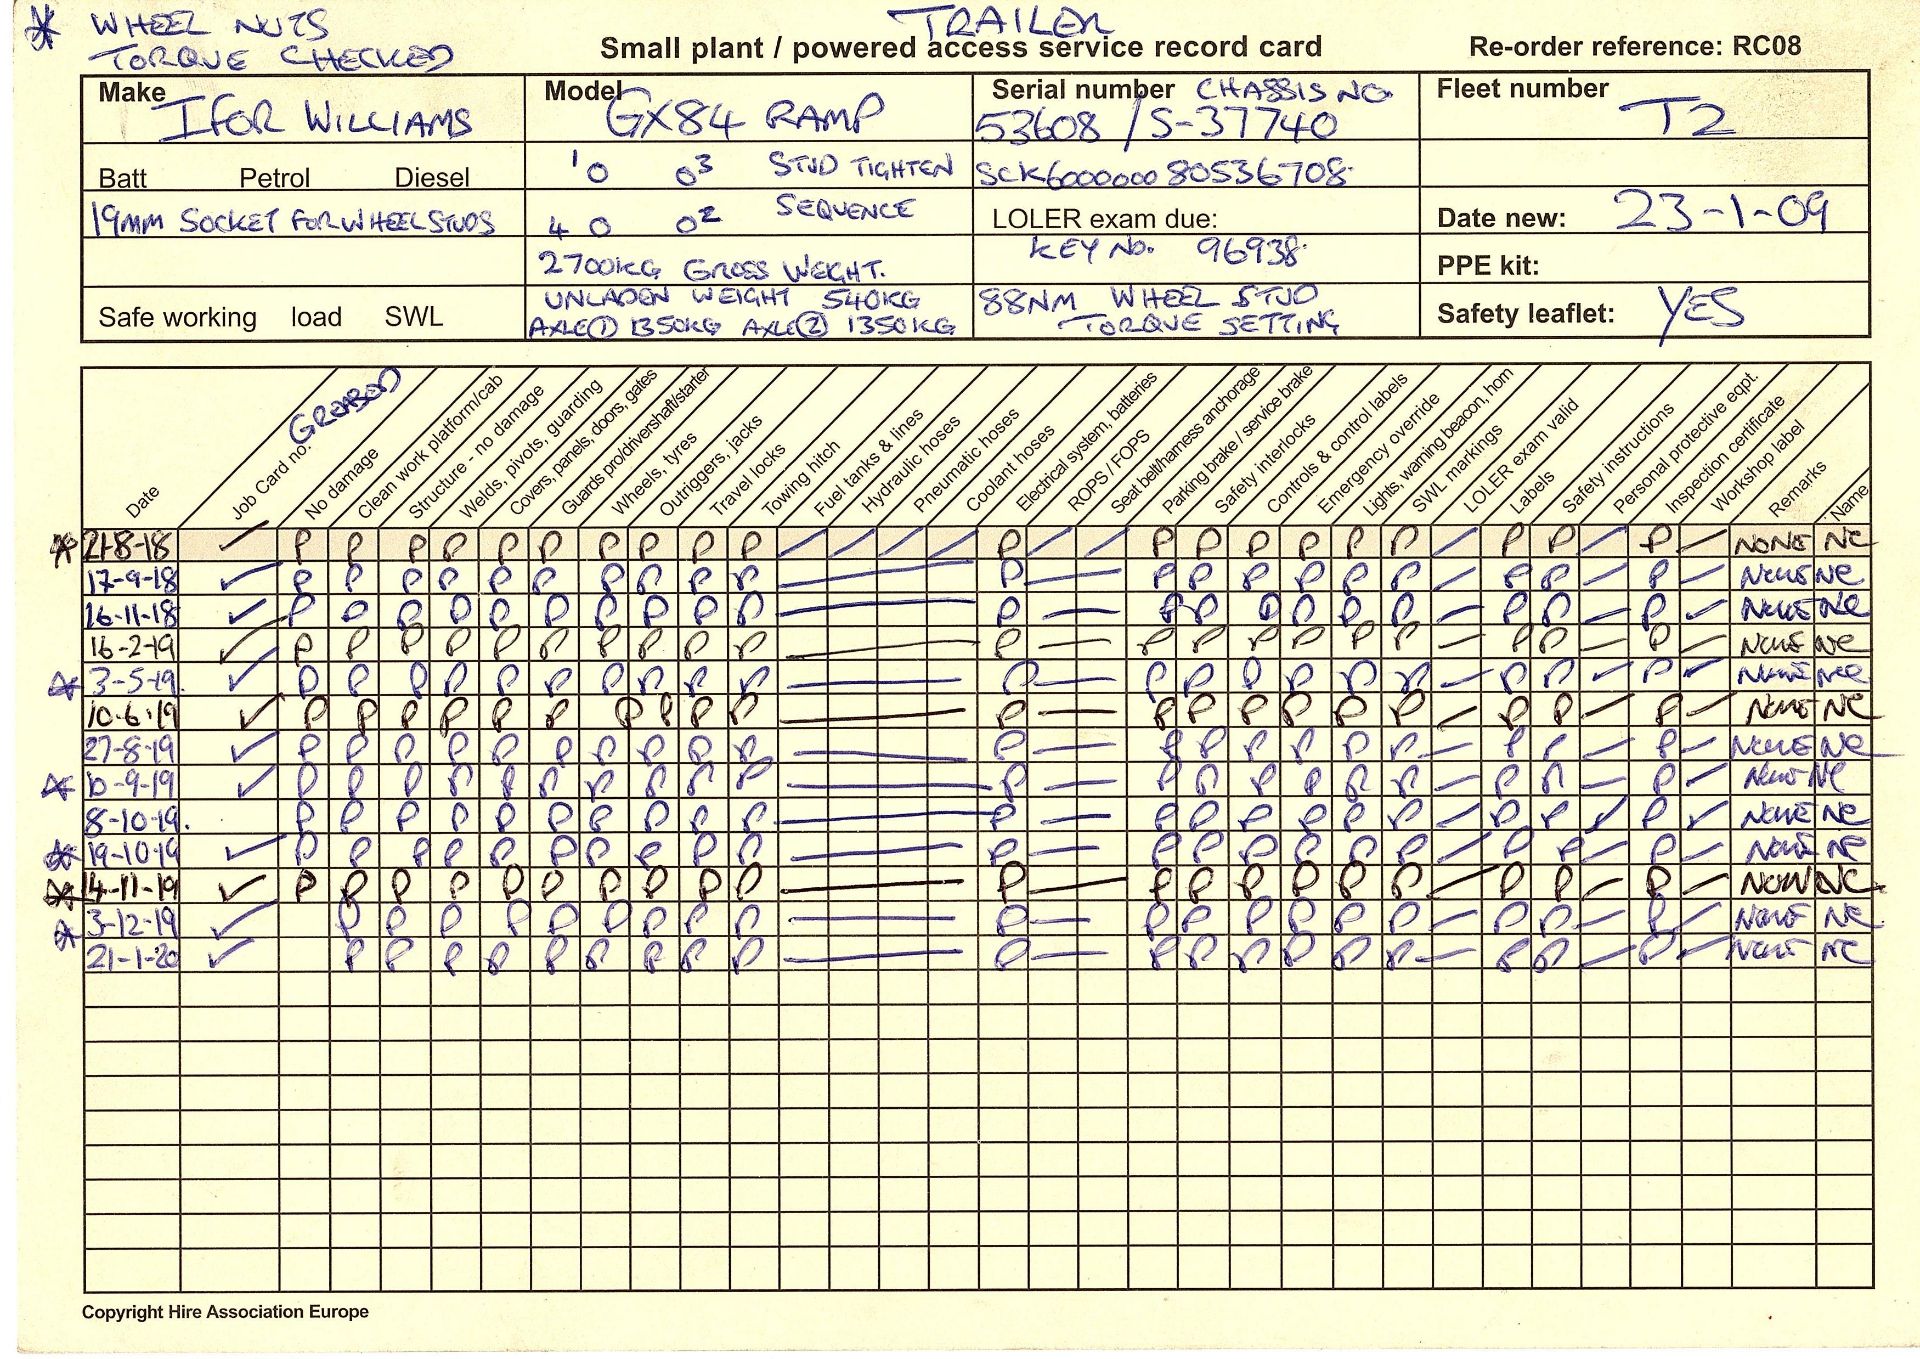 * WHEEL NUTS
TORQUE CHECKED
TRAILER
Small plant / powered access service record card
Re-order reference: RC08
Make IFOR WILLIAMS
Model GX84 RAMP
Serial number CHASSIS NO.
53608 / S-37740
Fleet number T2
Batt Petrol Diesel
1 0 0 3 STUD TIGHTEN
SCK60000080536708
19MM SOCKET FOR WHEEL STUDS
4 0 0 2 SEQUENCE
LOLER exam due:
Date new: 23-1-09
2700KG GROSS WEIGHT.
KEY No. 96938
PPE kit:
Safe working load SWL
UNLADEN WEIGHT 540KG
AXLE(1) 1350KG AXLE(2) 1350KG
88NM WHEEL STUD
TORQUE SETTING
Safety leaflet: YES
Date
Job Card no.
GREASED
No damage
Clean work platform/cab
Structure - no damage
Welds, pivots, guarding
Covers, panels, doors, gates
Guards pro/drivershaft/starter
Wheels, tyres
Outriggers, jacks
Travel locks
Towing hitch
Fuel tanks & lines
Hydraulic hoses
Pneumatic hoses
Coolant hoses
Electrical system, batteries
ROPS / FOPS
Seat belt/harness anchorage
Parking brake / service brake
Safety interlocks
Controls & control labels
Emergency override
Lights, warning beacon, horn
SWL markings
LOLER exam valid
Labels
Safety instructions
Personal protective eqpt.
Inspection certificate
Workshop label
Remarks
Name
* 21-8-18 ✓ P P P P P P P P P P / / / / P / / P P P P P P / P P / P / NONE NC
17-9-18 ✓ P P P P P P P P P P — P — P P P P P P — P P — P — NONE NC
16-11-18 ✓ P P P P P P P P P P — P — P P P P P P — P P — P ✓ NONE NC
16-2-19 ✓ P P P P P P P P P P — P — P P P P P P — P P — P — NONE NC
* 3-5-19. ✓ P P P P P P P P P P — P — P P P P P P — P P — P ✓ NONE NC
10-6-19 ✓ P P P P P P P P P P — P — P P P P P P — P P — P — NONE NC
27-8-19 ✓ P P P P P P P P P P — P — P P P P P P — P P — P — NONE NC
* 10-9-19 ✓ P P P P P P P P P P — P — P P P P P P — P P — P — NONE NC
8-10-19. P P P P P P P P P P — P — P P P P P P — P P ✓ P ✓ NONE NC
* 19-10-19 ✓ P P P P P P P P P P — P — P P P P P P — P P — P — NONE NC
* 14-11-19 ✓ P P P P P P P P P P — P — P P P P P P — P P — P — NONE NC
* 3-12-19 ✓ P P P P P P P P P — P — P P P P P P — P P — P — NONE NC
21-1-20 ✓ P P P P P P P P P — P — P P P P P P — P P — P — NONE NC
Copyright Hire Association Europe